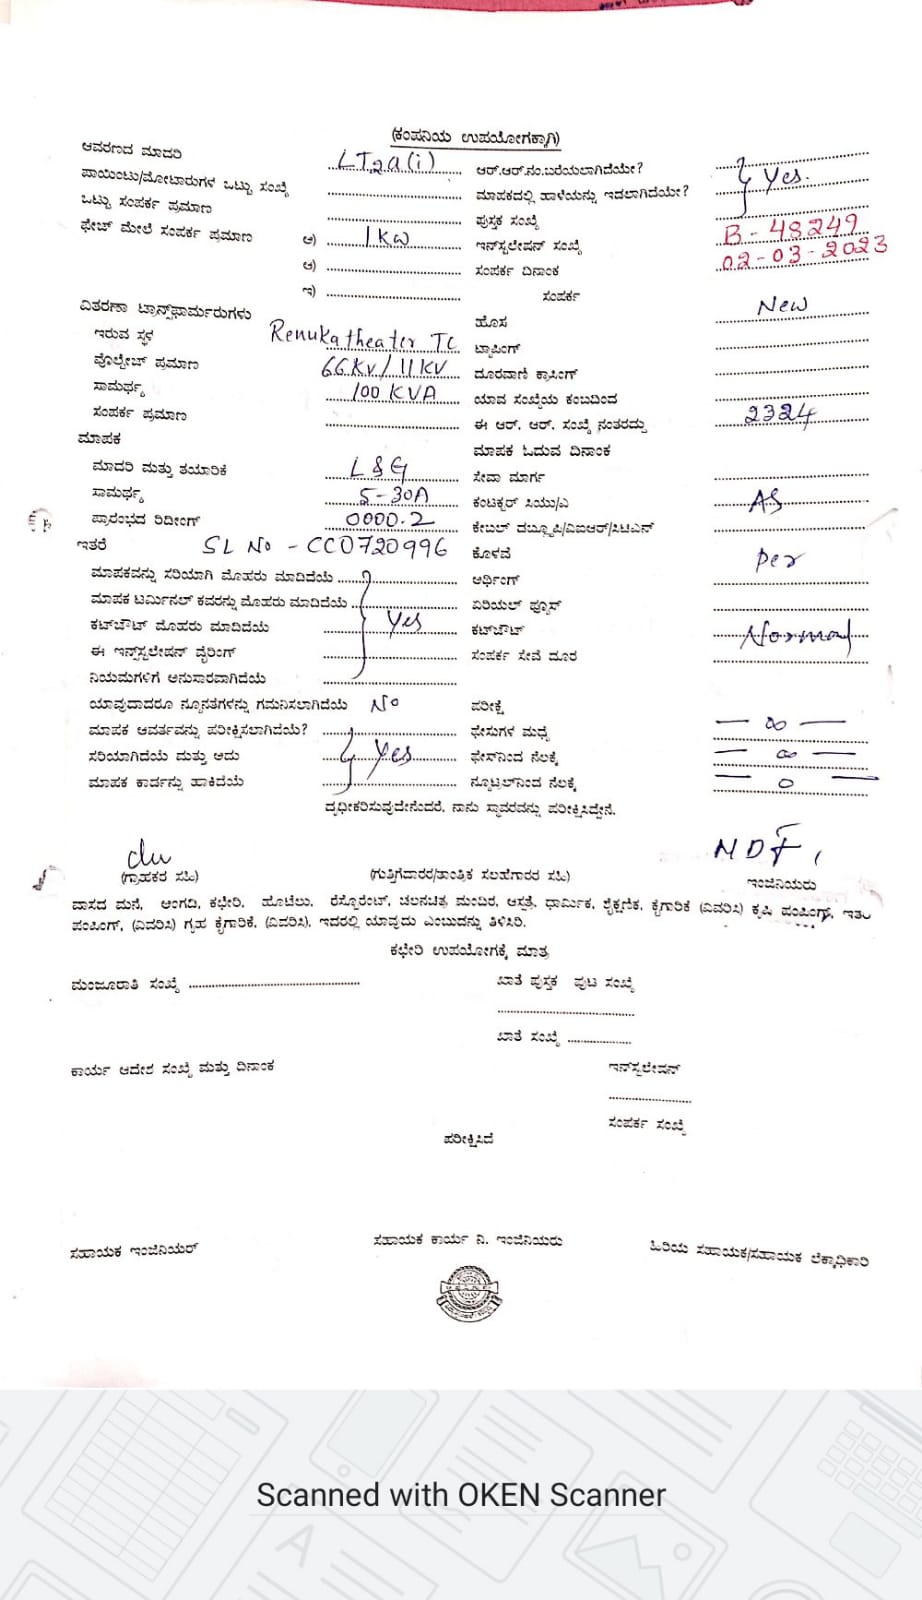 (ಕಂಪನಿಯ ಉಪಯೋಗಕ್ಕಾಗಿ)
ಆವರಣದ ಮಾದರಿ LT2a(i) ಆರ್.ಆರ್.ನಂ.ಬರೆಯಲಾಗಿದೆಯೇ? Yes.
ಪಾಯಿಂಟು/ಮೋಟಾರುಗಳ ಒಟ್ಟು ಸಂಖ್ಯೆ ಮಾಪಕದಲ್ಲಿ ಹಾಳೆಯನ್ನು ಇಡಲಾಗಿದೆಯೇ?
ಒಟ್ಟು ಸಂಪರ್ಕ ಪ್ರಮಾಣ ಪುಸ್ತಕ ಸಂಖ್ಯೆ
ಫೇಜ್ ಮೇಲೆ ಸಂಪರ್ಕ ಪ್ರಮಾಣ ಅ) 1kw ಇನ್‌ಸ್ಟಲೇಷನ್ ಸಂಖ್ಯೆ B-48249
ಆ) ಸಂಪರ್ಕ ದಿನಾಂಕ 02-03-2023
ಇ) ಸಂಪರ್ಕ
ವಿತರಣಾ ಟ್ರಾನ್ಸ್‌ಫಾರ್ಮರುಗಳು ಹೊಸ New
ಇರುವ ಸ್ಥಳ Renuka theater TC ಟ್ಯಾಪಿಂಗ್
ವೊಲ್ಟೇಜ್ ಪ್ರಮಾಣ 66KV/11KV ದೂರವಾಣಿ ಕ್ರಾಸಿಂಗ್
ಸಾಮರ್ಥ್ಯ 100 KVA ಯಾವ ಸಂಖ್ಯೆಯ ಕಂಬದಿಂದ
ಸಂಪರ್ಕ ಪ್ರಮಾಣ ಈ ಆರ್. ಆರ್. ಸಂಖ್ಯೆ ನಂತರದ್ದು 2324
ಮಾಪಕ ಮಾಪಕ ಓದುವ ದಿನಾಂಕ
ಮಾದರಿ ಮತ್ತು ತಯಾರಿಕೆ L&G ಸೇವಾ ಮಾರ್ಗ
ಸಾಮರ್ಥ್ಯ 5-30A ಕಂಟಕ್ಟರ್ ಸಿಯು/ಎ AS
ಪ್ರಾರಂಭದ ರಿಡೀಂಗ್ 0000.2 ಕೇಬಲ್ ಡಬ್ಲ್ಯೂಪಿ/ವಿಐಆರ್/ಸಿಟಿಎನ್
ಇತರೆ SL No - CC0720996 ಕೊಳವೆ Per
ಮಾಪಕವನ್ನು ಸರಿಯಾಗಿ ಮೊಹರು ಮಾಡಿದೆಯೆ ಆರ್ಥಿಂಗ್
ಮಾಪಕ ಟರ್ಮಿನಲ್ ಕವರನ್ನು ಮೊಹರು ಮಾಡಿದೆಯೆ ಏರಿಯಲ್ ಫ್ಯೂಸ್
ಕಟ್‌ಔಟ್ ಮೊಹರು ಮಾಡಿದೆಯೆ Yes ಕಟ್‌ಔಟ್ Normal
ಈ ಇನ್ಸ್‌ಸ್ಟಲೇಷನ್ ವೈರಿಂಗ್ ಸಂಪರ್ಕ ಸೇವೆ ದೂರ
ನಿಯಮಗಳಿಗೆ ಅನುಸಾರವಾಗಿದೆಯೆ
ಯಾವುದಾದರೂ ನ್ಯೂನತೆಗಳನ್ನು ಗಮನಿಸಲಾಗಿದೆಯೆ No ಪರೀಕ್ಷೆ
ಮಾಪಕ ಆವರ್ತವನ್ನು ಪರೀಕ್ಷಿಸಲಾಗಿದೆಯೆ? ಫೇಸುಗಳ ಮಧ್ಯೆ — ∞ —
ಸರಿಯಾಗಿದೆಯೆ ಮತ್ತು ಅದು Yes ಫೇಸ್‌ನಿಂದ ನೆಲಕ್ಕೆ — ∞ —
ಮಾಪಕ ಕಾರ್ಡನ್ನು ಹಾಕಿದೆಯೆ ನ್ಯೂಟ್ರಲ್‌ನಿಂದ ನೆಲಕ್ಕೆ — 0 —
ದೃಢೀಕರಿಸುವುದೇನೆಂದರೆ, ನಾನು ಸ್ಥಾವರವನ್ನು ಪರೀಕ್ಷಿಸಿದ್ದೇನೆ.
(ಗ್ರಾಹಕರ ಸಹಿ) (ಗುತ್ತಿಗೆದಾರರ/ತಾಂತ್ರಿಕ ಸಲಹೆಗಾರರ ಸಹಿ) ಇಂಜಿನಿಯರು
ವಾಸದ ಮನೆ, ಅಂಗಡಿ, ಕಛೇರಿ, ಹೊಟೆಲು, ರೆಸ್ಟೊರೆಂಟ್, ಚಲನಚಿತ್ರ ಮಂದಿರ, ಆಸ್ಪತ್ರೆ, ಧಾರ್ಮಿಕ, ಶೈಕ್ಷಣಿಕ, ಕೈಗಾರಿಕೆ (ವಿವರಿಸಿ) ಕೃಷಿ ಪಂಪಿಂಗ್ಸ್, ಇತರ
ಪಂಪಿಂಗ್, (ವಿವರಿಸಿ) ಗೃಹ ಕೈಗಾರಿಕೆ, (ವಿವರಿಸಿ), ಇದರಲ್ಲಿ ಯಾವುದು ಎಂಬುದನ್ನು ತಿಳಿಸಿರಿ.
ಕಛೇರಿ ಉಪಯೋಗಕ್ಕೆ ಮಾತ್ರ
ಮಂಜೂರಾತಿ ಸಂಖ್ಯೆ ಖಾತೆ ಪುಸ್ತಕ ಪುಟ ಸಂಖ್ಯೆ
ಖಾತೆ ಸಂಖ್ಯೆ
ಕಾರ್ಯ ಆದೇಶ ಸಂಖ್ಯೆ ಮತ್ತು ದಿನಾಂಕ ಇನ್‌ಸ್ಟಲೇಷನ್
ಸಂಪರ್ಕ ಸಂಖ್ಯೆ
ಪರೀಕ್ಷಿಸಿದೆ
ಸಹಾಯಕ ಇಂಜಿನಿಯರ್ ಸಹಾಯಕ ಕಾರ್ಯ ನಿ. ಇಂಜಿನಿಯರು ಹಿರಿಯ ಸಹಾಯಕ/ಸಹಾಯಕ ಲೆಕ್ಕಾಧಿಕಾರಿ
Scanned with OKEN Scanner